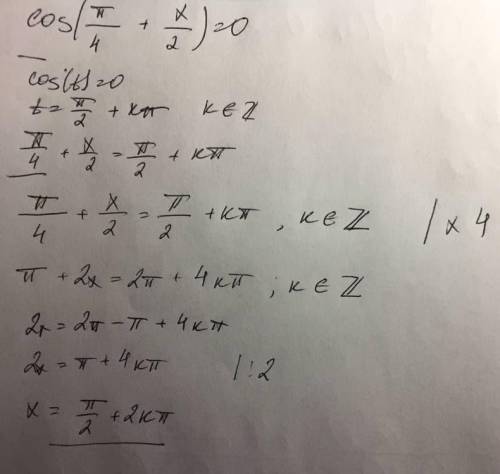 cos(π/4 + x/2)=0
cos(t)=0
t=π/2 + kπ k∈ℤ
π/4 + x/2 = π/2 + kπ
π/4 + x/2 = π/2 + kπ , k∈ℤ / x 4
π + 2x = 2π + 4kπ ; k∈ℤ
2x = 2π - π + 4kπ
2x = π + 4kπ /:2
x = π/2 + 2kπ